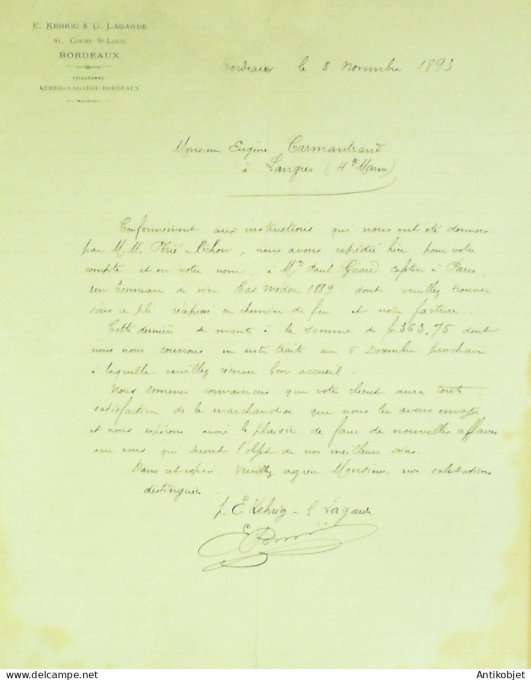 E. KEHRIG & G. LAGARDE
81, COURS ST-LOUIS
BORDEAUX
TÉLÉGRAMME
KEHRIG-LAGARDE-BORDEAUX
Bordeaux le 3 Novembre 1893
Monsieur Eugène Carmantrand
à Langres (Hte Marne)
Conformément aux instructions qui nous ont été données
par M.M. Périé-Pichon, nous avons expédié hier pour votre
compte et en votre nom, à Mr Paul Girard cafetier à Paris
un tonneau de vin Bas Médoc 1889 dont veuillez trouver
sous ce pli récépissé du chemin de fer et notre facture.
Cette dernière se monte à la somme de f 363,75 dont
nous nous couvrons en notre traite au 5 Décembre prochain
à laquelle veuillez réserver bon accueil.
Nous sommes convaincus que votre client aura toute
satisfaction de la marchandise que nous lui avons envoyée
et nous espérons avoir le plaisir de faire de nouvelles affaires
avec vous qui seront l'objet de nos meilleurs soins.
Dans cet espoir, veuillez agréer Monsieur, nos salutations
distinguées
p. E Kehrig - G Lagarde
Antikobjet